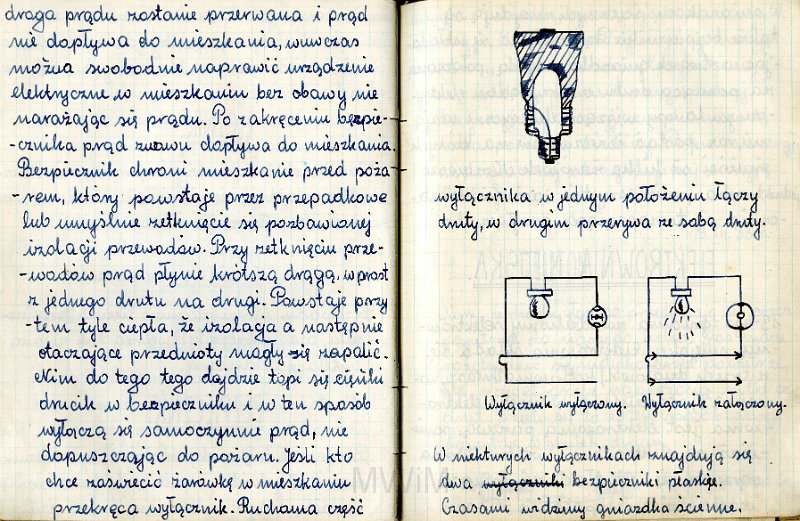 droga prądu zostanie przerwana i prąd
nie dopływa do mieszkania, wuwczas
można swobodnie naprawić urządzenie
elektryczne w mieszkaniu bez obawy nie
narażając się prądu. Po zakręceniu bezpie-
-cznika prąd znowu dopływa do mieszkania.
Bezpiecznik chroni mieszkanie przed poża
-rem, który powstaje przez przepadkowe
lub umyślnie zetknięcie się pozbawionej
izolacji przewodów. Przy zetknięciu prze-
-wodów prąd płynie krótszą drogą, wprost
z jednego drutu na drugi. Powstaje przy
-tem tyle ciepła, że izolacja a następnie
otaczające przedmioty mogły się zapalić.
Nim do tego tego dojdzie topi się cienki
drucik w bezpieczniku i w ten sposób
wyłączą się samoczynnie prąd, nie
dopuszczając do pożaru. Jeśli kto
chce zaświecić żarówkę w mieszkaniu
przekręca wyłącznik. Ruchama część
wyłącznika w jednym położeniu łączy
druty, w drugim przerywa ze sobą druty.
Wyłącznik wyłączony. Wyłącznik załączony.
W niekturych wyłącznikach znajdują się
dwa wyłączniki bezpieczniki płaskie.
Czasami widzimy gniazdka ścienne.
MWiM